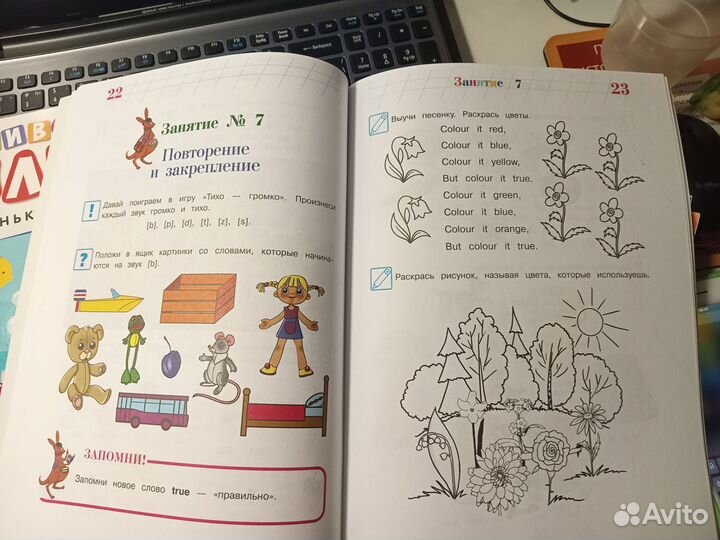 22
Занятие № 7
Повторение
и закрепление
Давай поиграем в игру «Тихо — громко». Произнеси
каждый звук громко и тихо.
[b], [p], [d], [t], [z], [s].
Положи в ящик картинки со словами, которые начина-
ются на звук [b].
ЗАПОМНИ!
Запомни новое слово true — «правильно».
Занятие 7
23
Выучи песенку. Раскрась цветы.
Colour it red,
Colour it blue,
Colour it yellow,
But colour it true.
Colour it green,
Colour it blue,
Colour it orange,
But colour it true.
Раскрась рисунок, называя цвета, которые используешь.
Avito